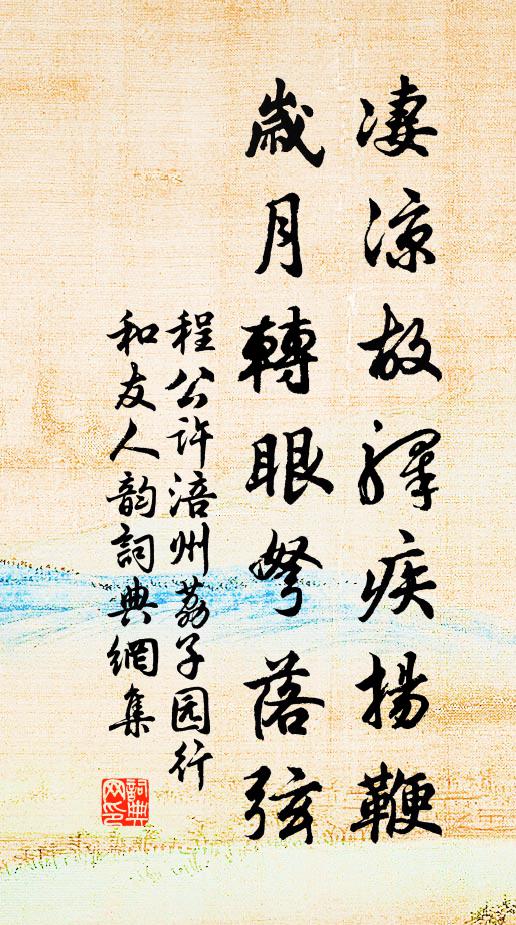 凄凉故驛疾揚鞭
歲月轉眼弩落弦
程公许涪州荔子园行
和友人韵詞典網集
詞典
网印